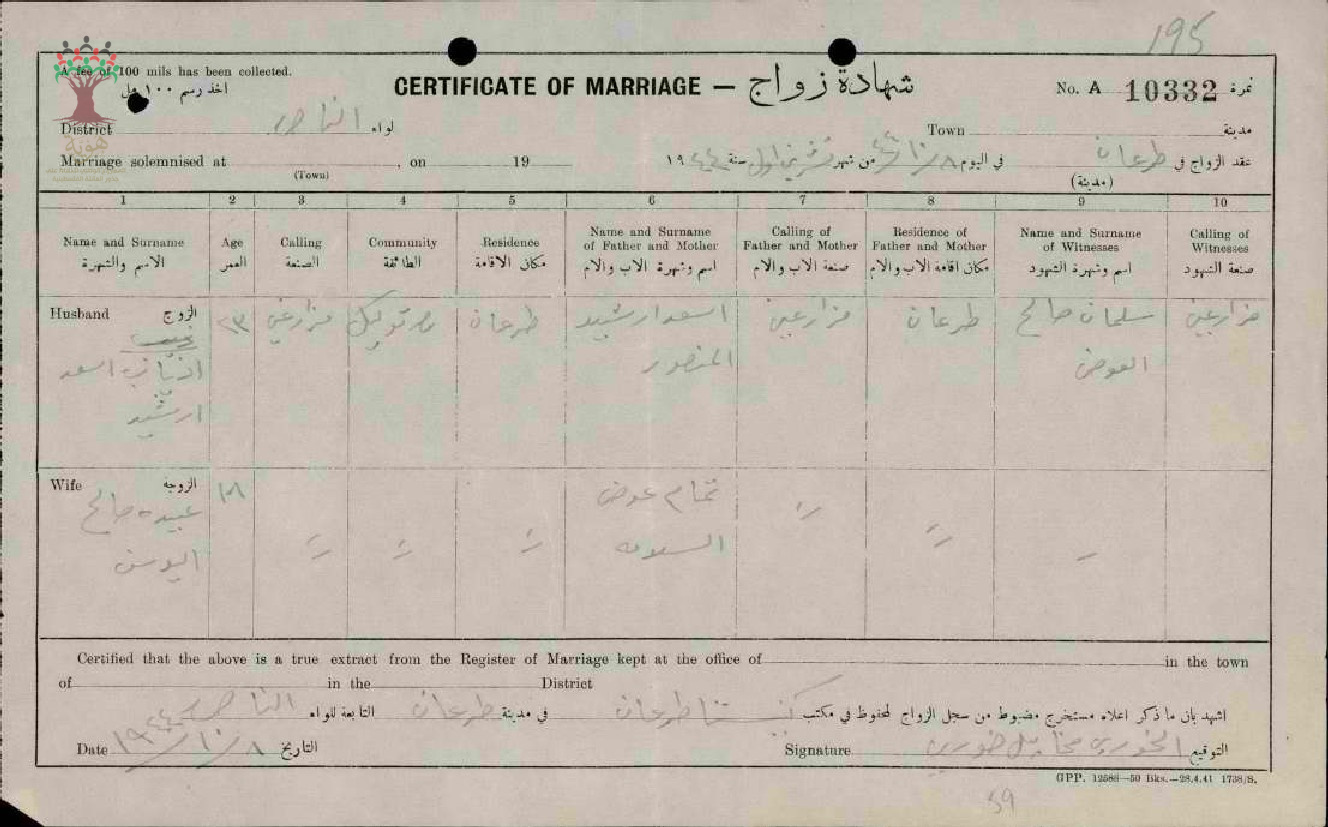 195
A fee of 100 mils has been collected.
اخذ رسم ١٠٠ مل
CERTIFICATE OF MARRIAGE — شهادة زواج
No. A 10332 نمرة
District الناصره لواء
Town مدينة
Marriage solemnised at , on 19
(Town)
عقد الزواج في طرعان في اليوم ٨ /١٠/ ٤٤ من شهر تشرين اول سنة ١٩٤٤
(مدينة)
1 2 3 4 5 6 7 8 9 10
Name and Surname الاسم والشهرة
Age العمر
Calling الصنعة
Community الطائفة
Residence مكان الاقامة
Name and Surname of Father and Mother اسم وشهرة الاب والام
Calling of Father and Mother صنعة الاب والام
Residence of Father and Mother مكان اقامة الاب والام
Name and Surname of Witnesses اسم وشهرة الشهود
Calling of Witnesses صنعة الشهود
Husband الزوج
اسعد
ارشيد
٢٣
طرعان
اسعد ارشيد
المنصور
طرعان
سلمان صالح
العوض
Wife الزوجة
صالح
اليوسف
١٨
تمام عوض
Certified that the above is a true extract from the Register of Marriage kept at the office of in the town
of in the District
اشهد بان ما ذكر اعلاه مستخرج مضبوط من سجل الزواج المحفوظ في مكتب طرعان في مدينة طرعان التابعة للواء الناصره
Date ٨ /١٠/ ١٩٤٤ التاريخ
Signature الخوري خوري التوقيع
GPP. 12588—50 Bks.—28.4.41 1738/S.
59
هوية